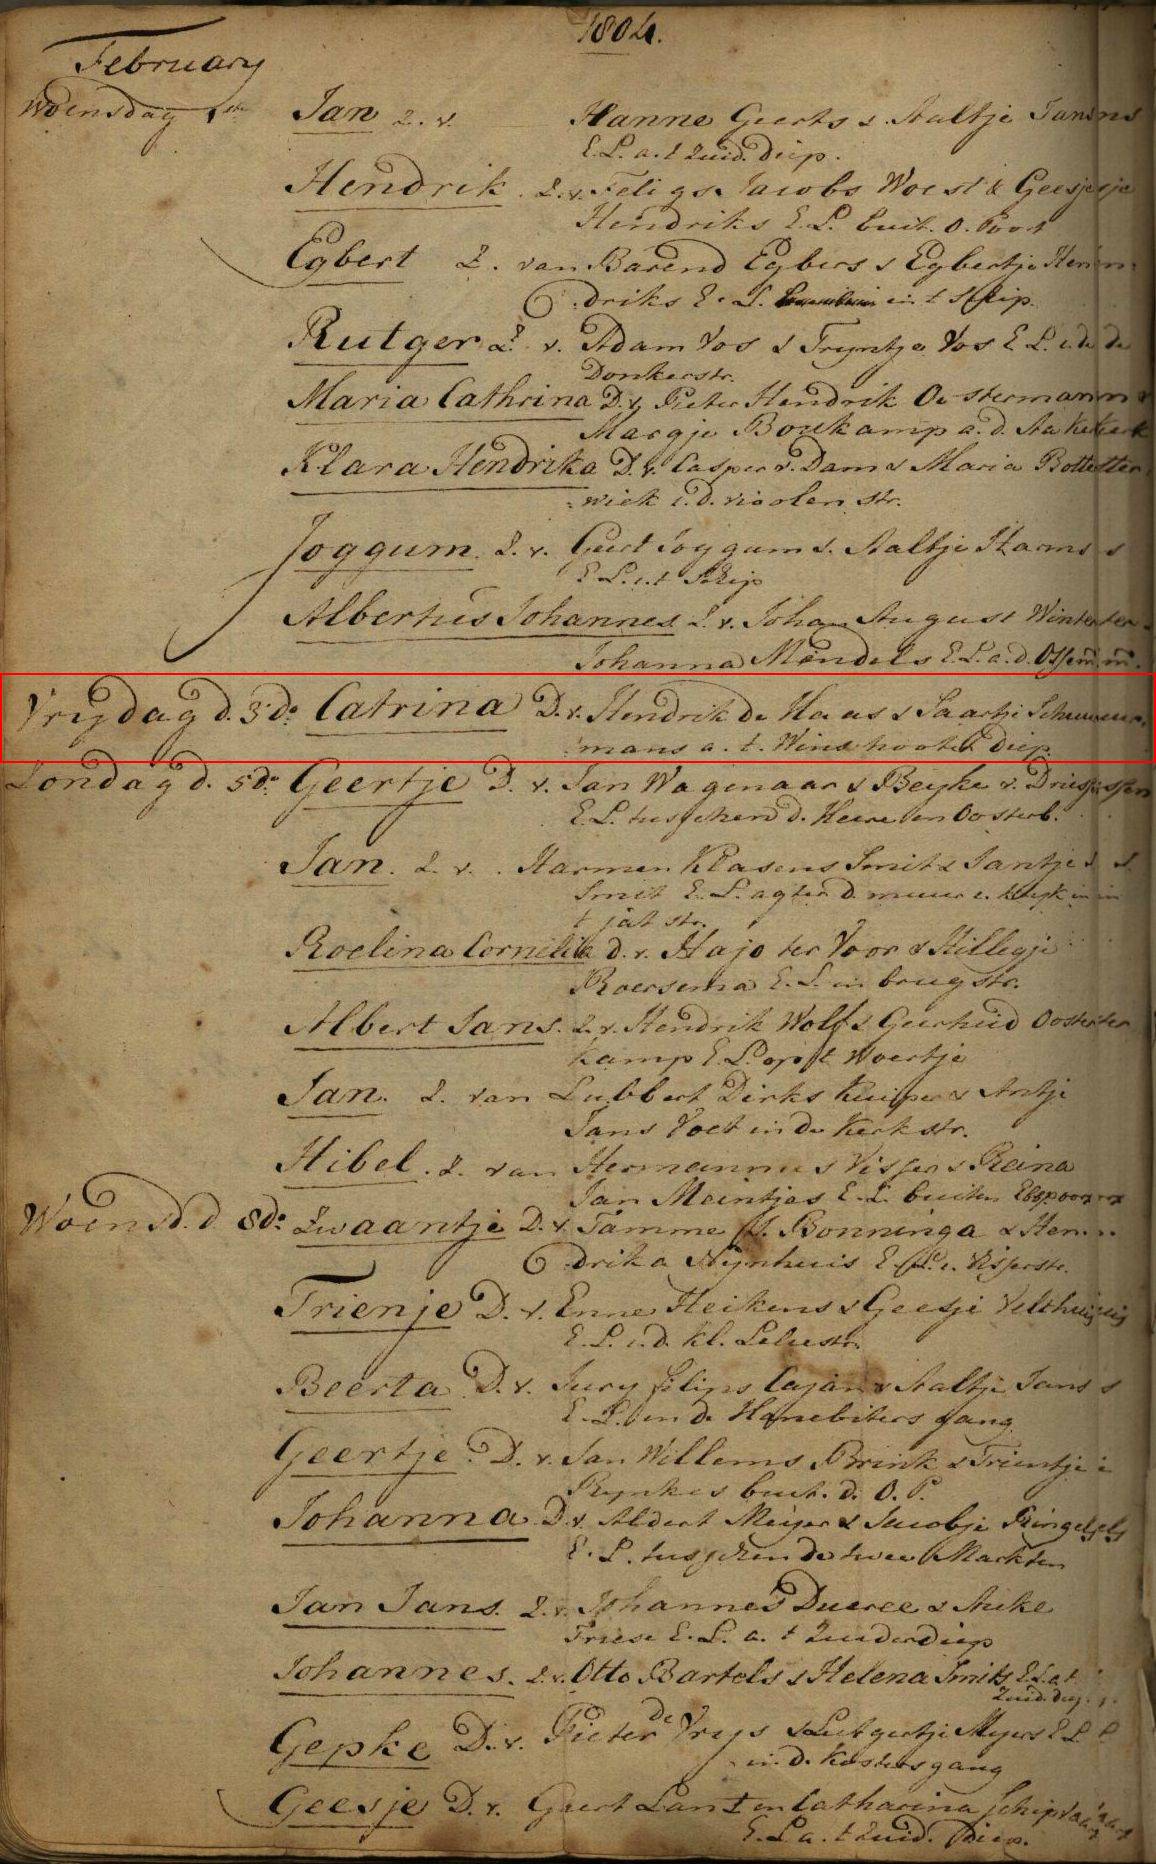 1804.
February
Woensdag 1ste Jan Z. v. Hanne Geerts & Aaltje Jansens
E. L. a. t Zuid. diep.
Hendrik. Z. v. Jacobs Woest & Geesje
Hendriks E. L. buit. O. Poort
Egbert Z. van Barend Egbers & Egbertje Hen
driks E. L. in t Schip.
Rutger Z. v. Adam Vos & Tryntje Vos E L. i. de
Donkerstr.
Maria Cathrina D. v. Pieter Hendrik Oostermann &
Margje Boukamp a. d. Aa Kerk
Klara Hendrika D. v. Casper v. Dam & Maria Botter
wiek i. d. violen str.
Joggum. Z. v. Geert Joggums. Aaltje Harms
E L. i. t Schip
Albertus Johannes Z. v. Johan August Winter &
Johanna Mendels E. L. a. d. Ossem.
Vrydag d. 3de Catrina D. v. Hendrik de Haas & Saartje Schuur
mans a. t. Winschooter diep
Zondag d. 5de Geertje D. v. Jan Wagenaar & Beyke v. Driessen
E. L. tusschen d. Heere en Oosterb.
Jan. Z. v. Harmen Klasens Smit & Jantje
Smit E. L. agter d. muur in
t jat str.
Roelina Cornelia d. v. Hajo ter Voor & Hillegje
Roersema E. L. in brugstr.
Albert Jans. Z. v. Hendrik Wolfs & Geerhuid Ooster
kamp E. L. op t Woertje
Jan. Z. van Lubbert Dirks Kuiper & Antje
Jans Voet in de Kerk str.
Hibel. Z. van Hermannus Visser & Reina
Jan Meintjes E. L. buiten Ebpoor
Woensd. d 8de Zwaantje D. v. Tamme J. Bonninga & Hen
drika Nynhuis E. L. i. Visserstr.
Trienje D. v. Enne Heikens & Geesje Velthuis
E. L. i. d. kl. Leliestr.
Beerta D. v. Jury filips Cajan & Aaltje Jans
E. L. in de Hanebiters gang
Geertje D. v. Jan Willems Brink & Trientje
Rynkes buit. d. O. P.
Johanna D. v. Aldert Meijer & Jacobje Ringels
E. L. tusschen de twee Markten
Jan Jans. Z. v. Johannes Ducree & Auke
Friese E. L. a. t Zuiderdiep
Johannes. Z. v. Otto Bartels & Helena Smit E. L. a. t
Zuid. diep.
Gepke D. v. Pieter de Vrys & Lutgertje Meyers E L
in d. Kosters gang
Geesje D. v. Geert Lant en Catharina Schipvaart
E. L. a. t Zuid. Diep.